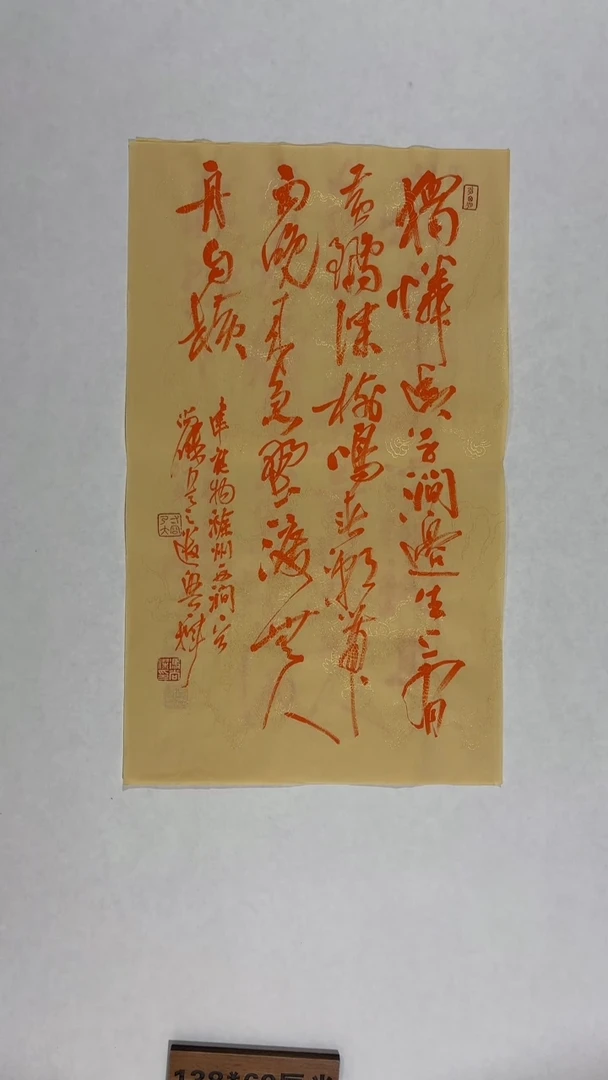 獨憐幽草澗邊生上有
黄鸝深樹鳴春潮帶
雨晚来急野渡無人
舟自橫
韋應物滁州西澗
138*69厘米